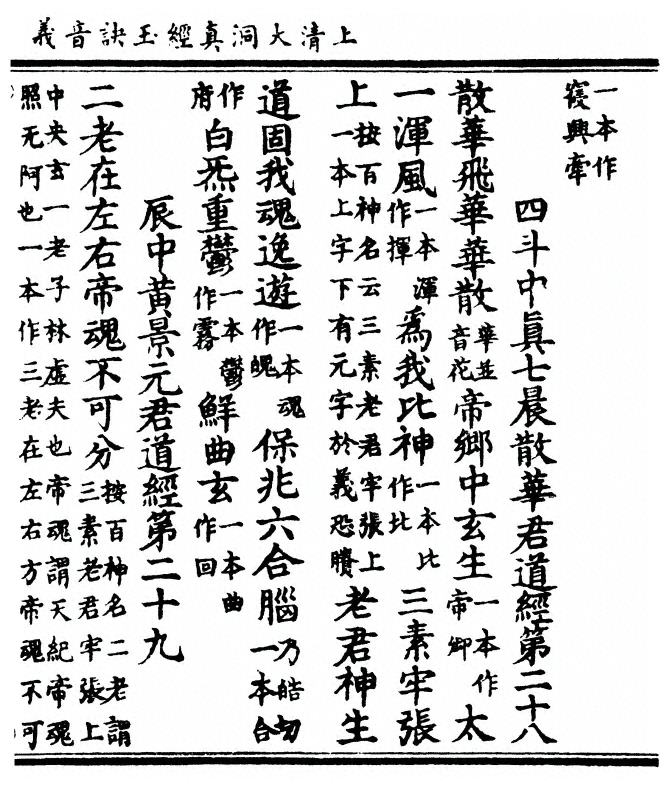 上清大洞真經玉訣音義
一本作寑興牽
四斗中眞七晨散華君道經第二十八
散華飛華華散華並音花帝鄉中玄生一本作帝卿太
一渾風一本渾作揮爲我比神一本比作比三素牢張
上按百神名云三素老君牢張上一本上字下有元字於義恐賸老君神生
道固我魂逸遊一本魂作魄保兆六合腦乃皓切一本合
作府白炁重鬱一本鬱作霧鮮曲玄一本曲作回
辰中黃景元君道經第二十九
二老在左右帝魂不可分按百神名二老謂三素老君牢張上
中央玄一老子林虛夫也帝魂謂天紀帝魂照无阿也一本作三老在左右方帝魂不可